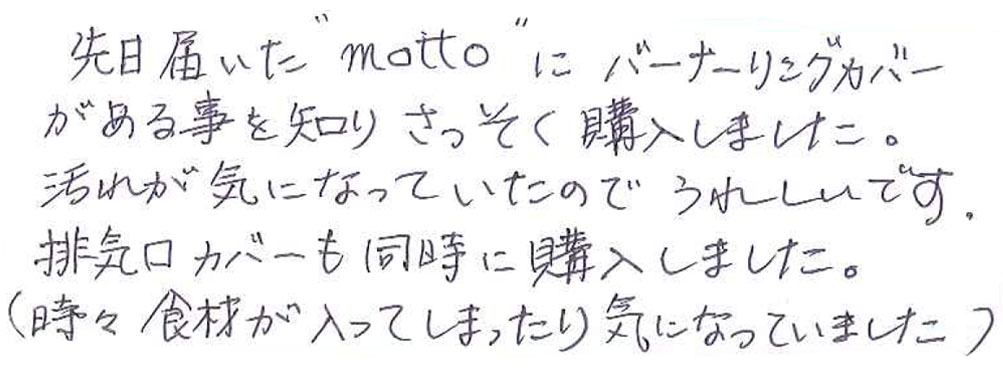 先日届いた"motto"にバーナーリングカバー
がある事を知りさっそく購入しました。
汚れが気になっていたのでうれしいです。
排気口カバーも同時に購入しました。
(時々食材が入ってしまったり気になっていました)